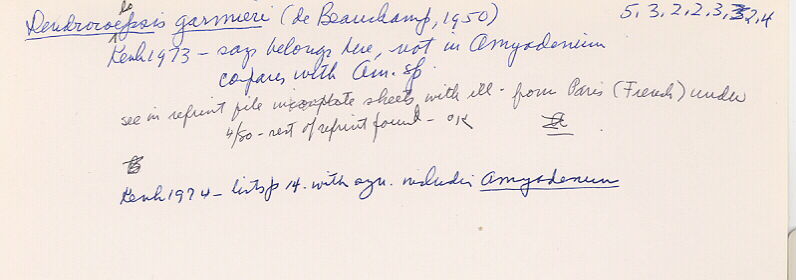 Dendrocoelopsis garmieri (de Beauchamp, 1950) 5.3.2.2.3.2.4
Kenk 1973 - says belongs here, not in Amyadenium
compares with Am. sp.
see in reprint file incomplete sheets with ill. - from Paris (French) under
4/80 - rest of reprint found - OK
Kenk 1974 - lists p 14. with syn. includes Amyadenium